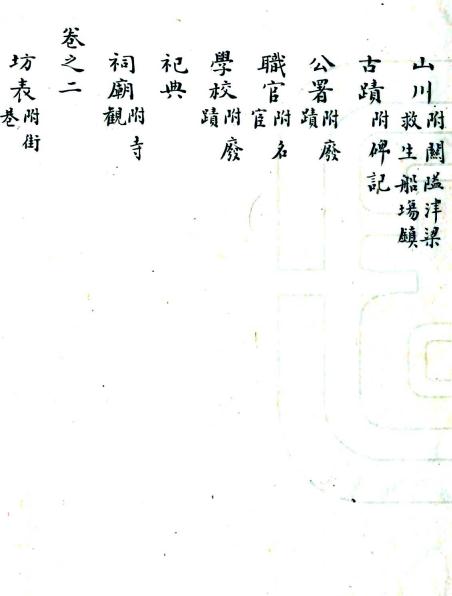 山川附關隘津梁救生船塲鎮
古蹟附碑記
公署附廢蹟
職官附名宦
學校附廢蹟
祀典
祠廟附寺觀
卷之二
坊表附街巷